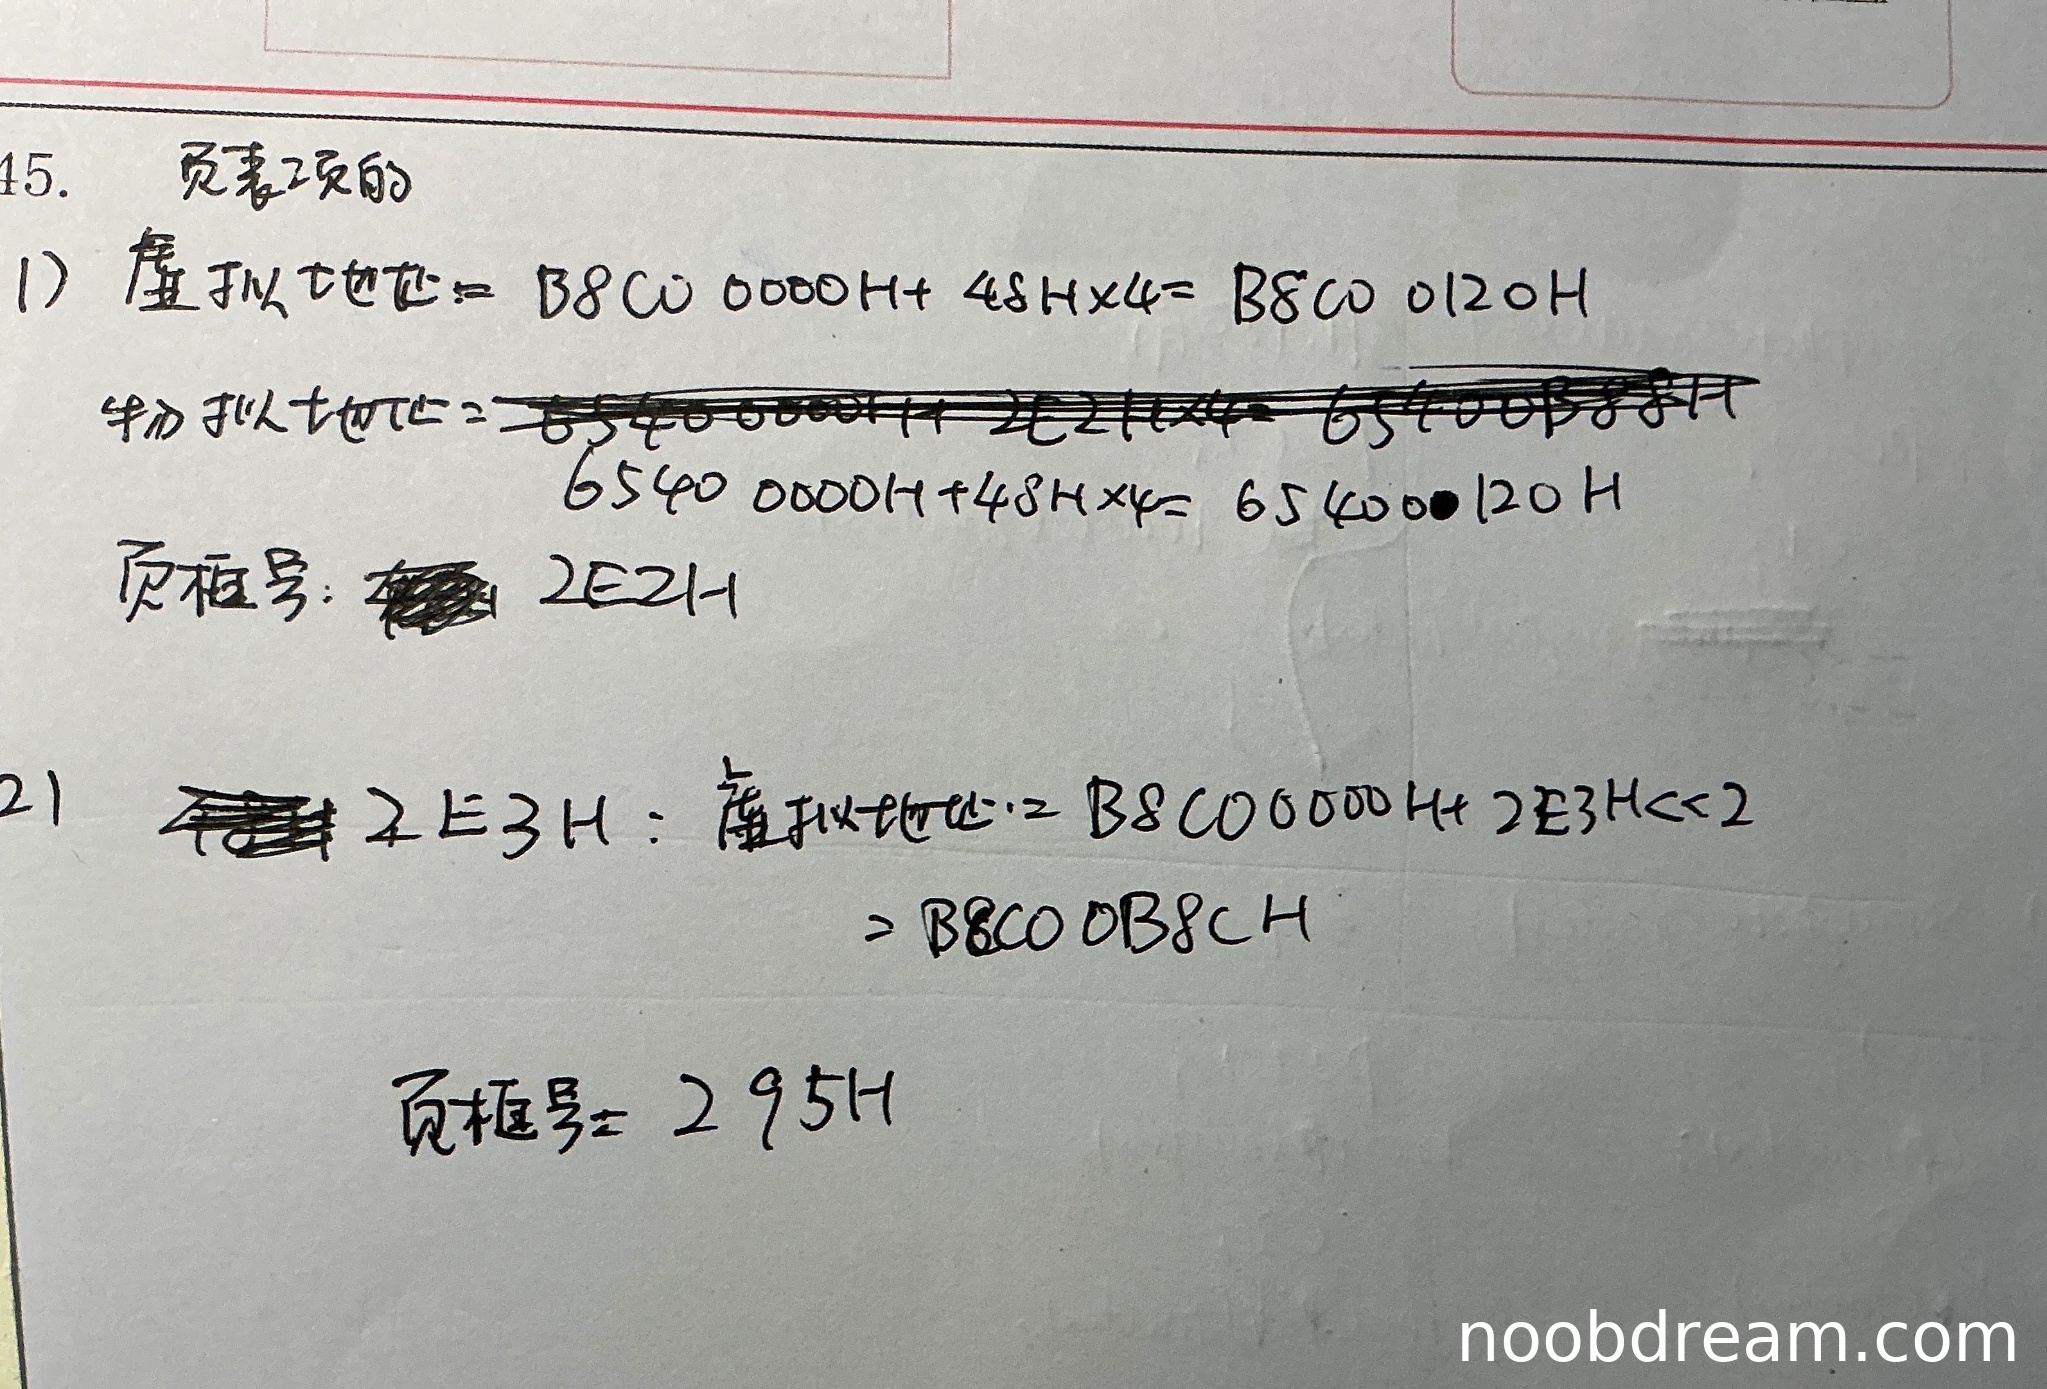 45. 页表项的
1) 虚拟地址:= B8C0 0000H+ 48H×4= B8C0 0120H
物拟地址= 65400000H+ 2E2H×4= 65400B88H
6540 0000H+48H×4= 65400120H
页框号: 2E2H
2) 2E3H: 虚拟地址:= B8C00000H+ 2E3H<<2
= B8C00B8CH
页框号= 295H
noobdream.com